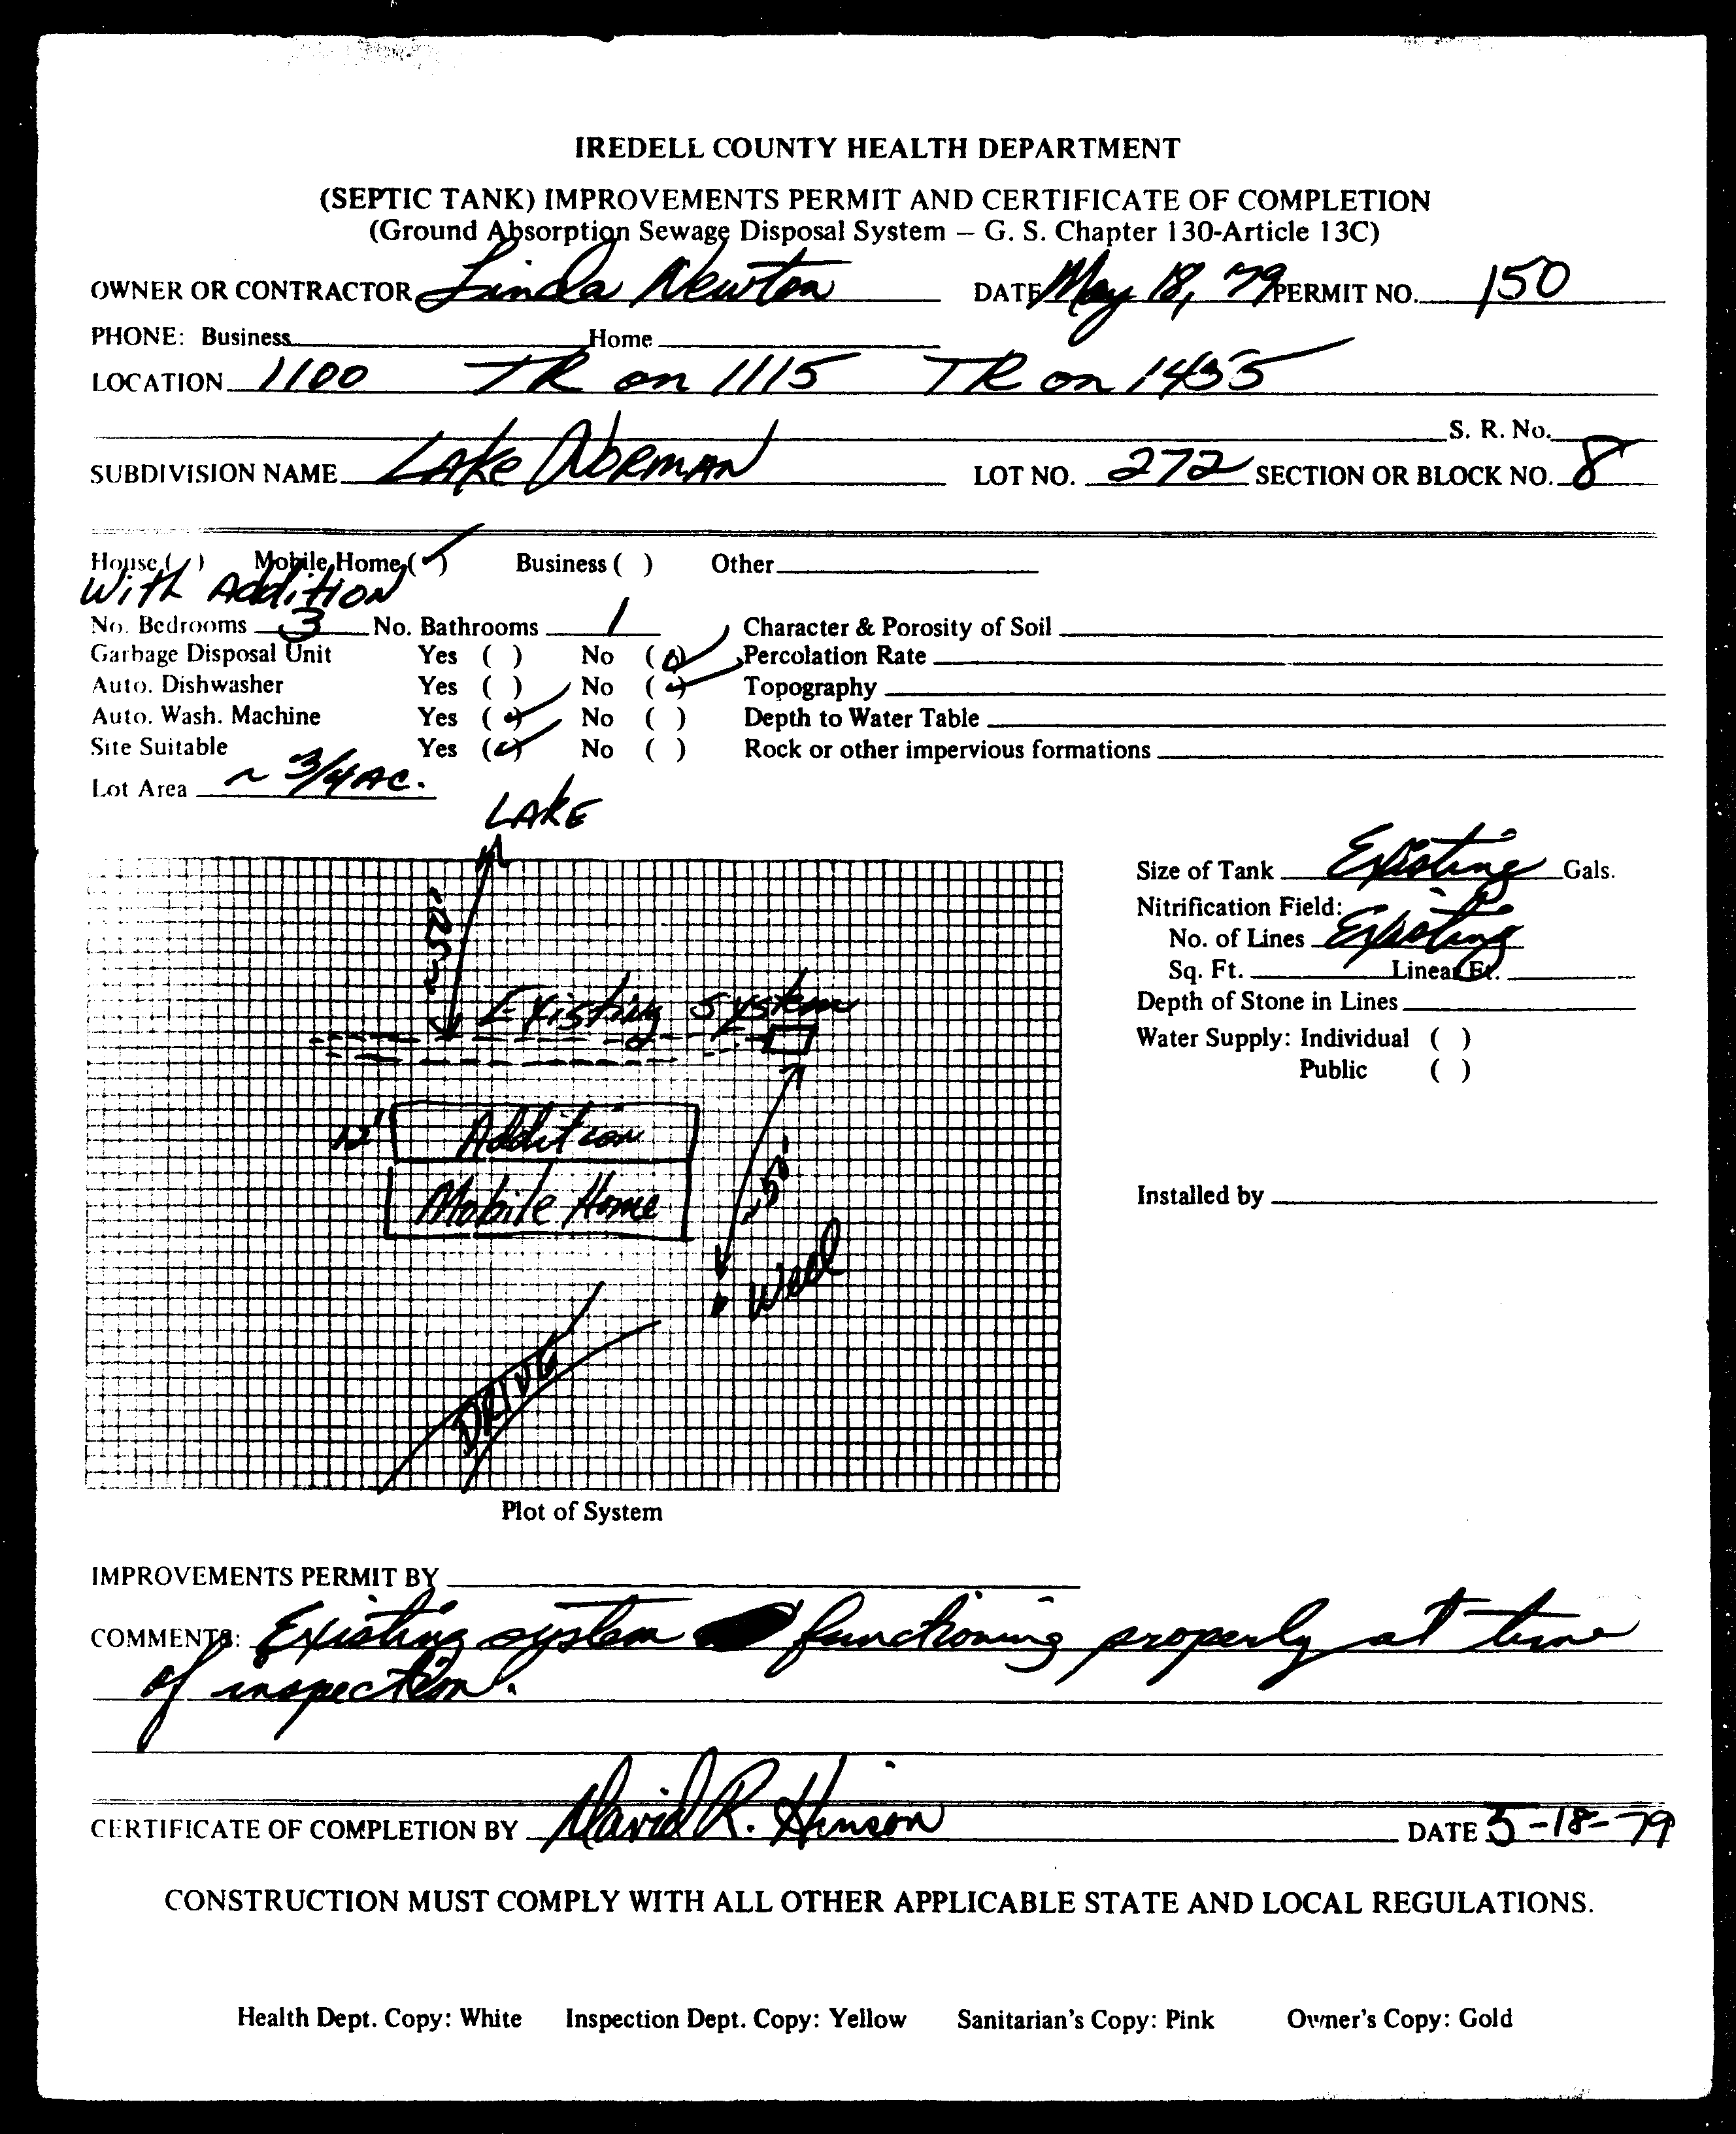 IREDELL COUNTY HEALTH DEPARTMENT
(SEPTIC TANK) IMPROVEMENTS PERMIT AND CERTIFICATE OF COMPLETION
(Ground Absorption Sewage Disposal System – G. S. Chapter 130-Article 13C)
OWNER OR CONTRACTOR Linda Newton DATE May 18, 79 PERMIT NO. 150
PHONE: Business Home
LOCATION 1100 TR on 1115 TR on 1435
S. R. No.
SUBDIVISION NAME LAKE NORMAN LOT NO. 272 SECTION OR BLOCK NO. 8
House ( ) Mobile Home (✓) Business ( ) Other
With Addition
No. Bedrooms 3 No. Bathrooms 1 Character & Porosity of Soil
Garbage Disposal Unit Yes ( ) No (✓) Percolation Rate
Auto. Dishwasher Yes ( ) No (✓) Topography
Auto. Wash. Machine Yes (✓) No ( ) Depth to Water Table
Site Suitable Yes (✓) No ( ) Rock or other impervious formations
Lot Area ~ 3/4 AC.
LAKE
Size of Tank Existing Gals.
Nitrification Field:
No. of Lines Existing
Sq. Ft. Linear Ft.
Depth of Stone in Lines
Water Supply: Individual ( )
Public ( )
~50'
Existing System
12' Addition
Mobile Home
~50'
Well
DRIVE
Installed by
Plot of System
IMPROVEMENTS PERMIT BY
COMMENTS: Existing system functioning properly at time
of inspection.
CERTIFICATE OF COMPLETION BY David R. Hinson DATE 5-18-79
CONSTRUCTION MUST COMPLY WITH ALL OTHER APPLICABLE STATE AND LOCAL REGULATIONS.
Health Dept. Copy: White Inspection Dept. Copy: Yellow Sanitarian's Copy: Pink Owner's Copy: Gold